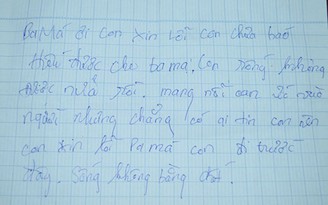 Ba Má ơi con xin lỗi con chưa báo
hiếu được cho ba má. Con sống không
được nữa rồi. mang nỗi oan ức của
người nhưng chẳng có ai tin con nên
con xin lỗi Ba má con đi trước
đây. Sống không bằng chết.